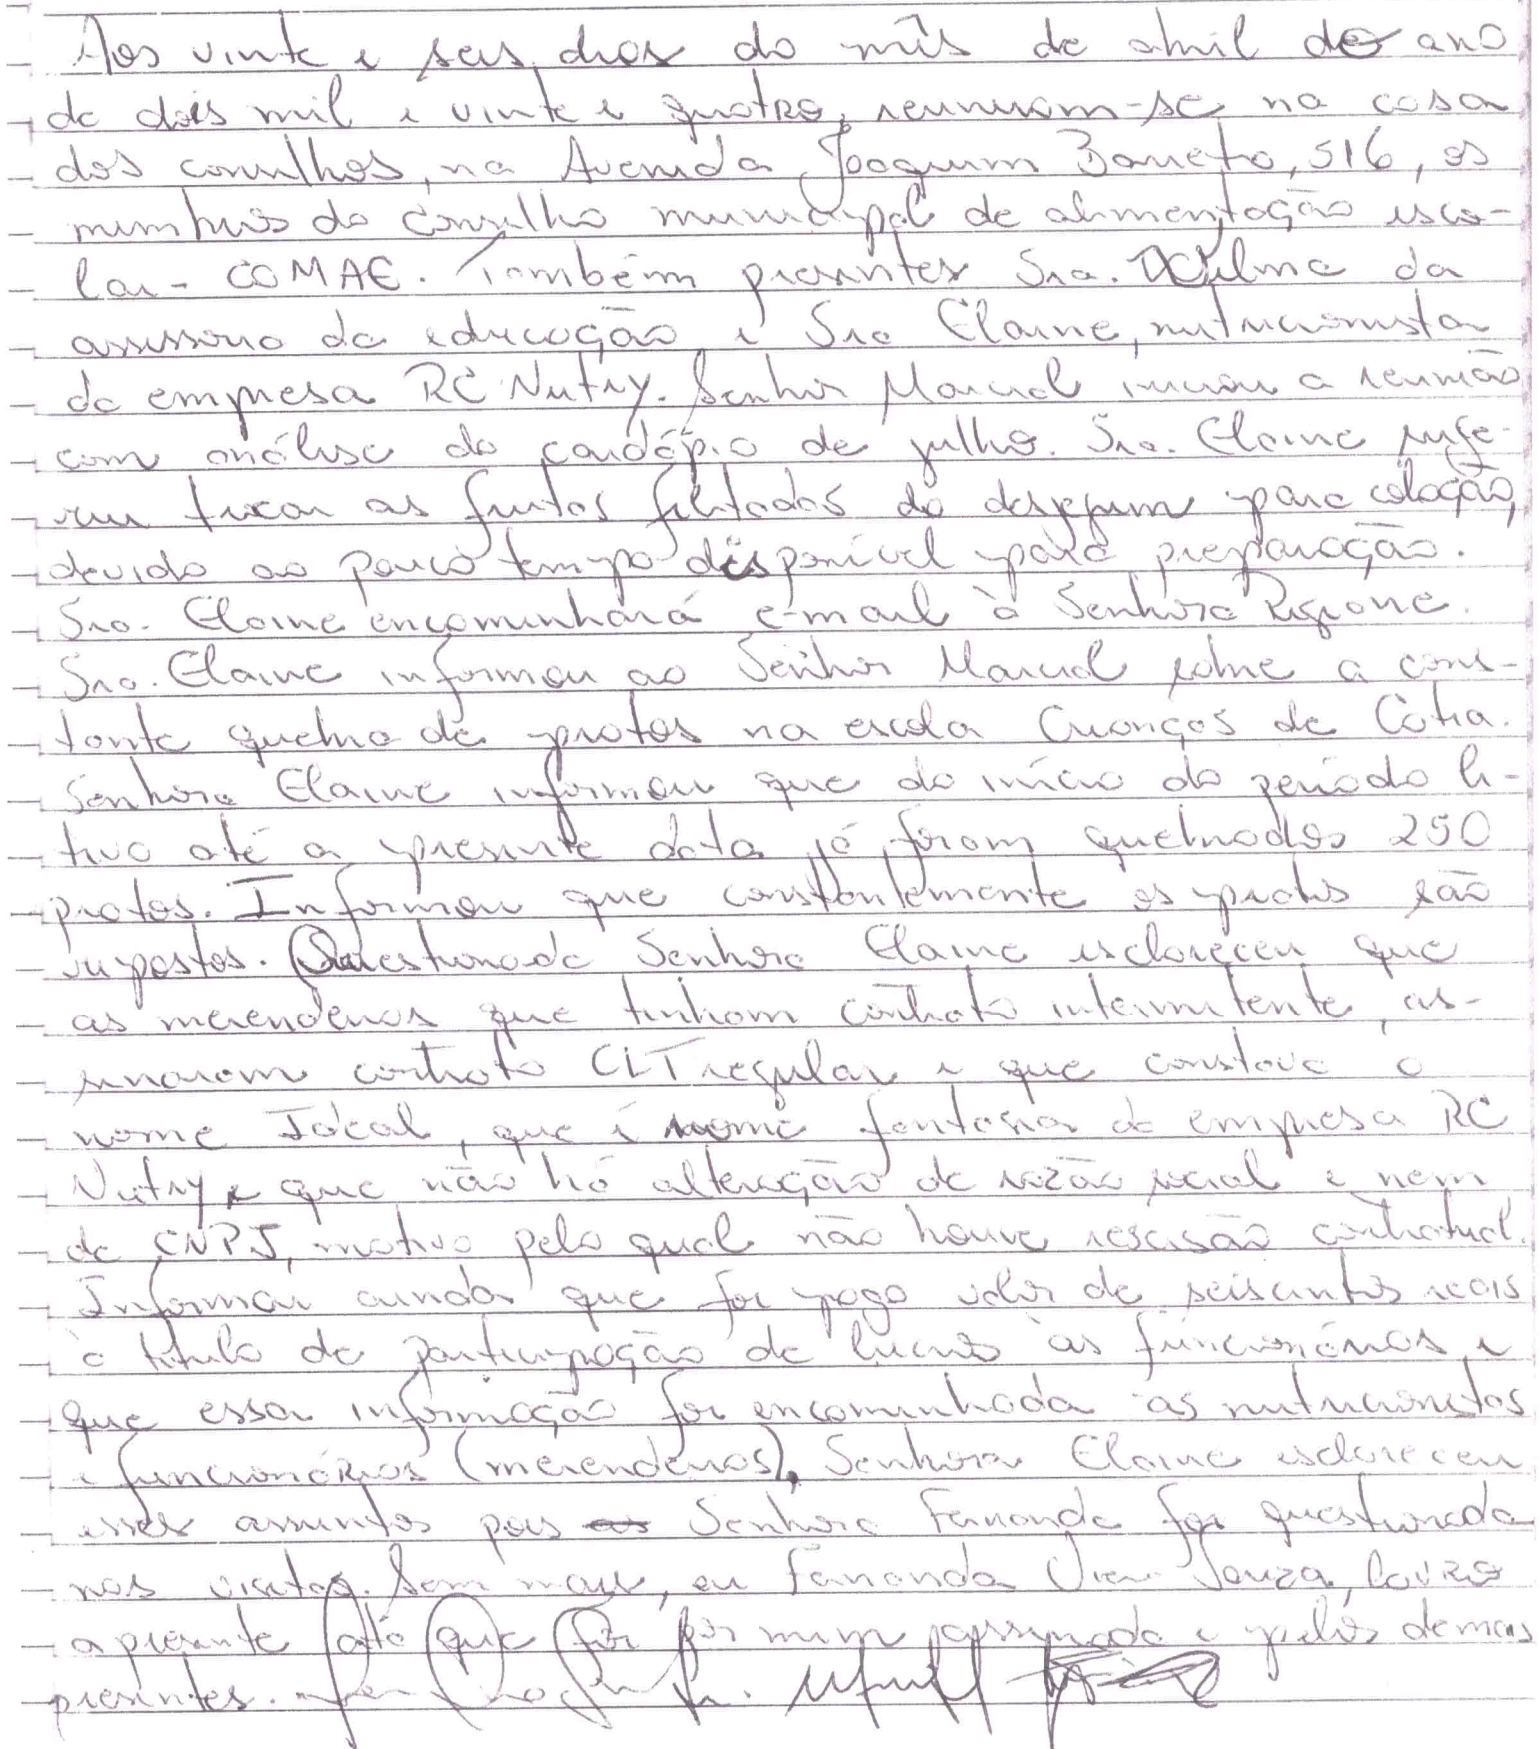 Aos vinte e seis dias do mês de abril do ano
de dois mil e vinte e quatro, reuniram-se na casa
dos conselhos, na Avenida Joaquim Barreto, 516, os
membros do Conselho municipal de alimentação esco-
lar - COMAE. Também presentes Sra. Dilma da
assessoria da educação e Sra Elaine, nutricionista
da empresa RC Nutry. Senhor Marcial iniciou a reunião
com análise do cardápio de julho. Sra. Elaine suge-
riu trocar as frutas fatiadas do desjejum para colação,
devido ao pouco tempo disponível para preparação.
Sra. Elaine encaminhará e-mail à Senhora Regiane.
Sra. Elaine informou ao Senhor Marcial sobre a cons-
tante quebra de pratos na escola Crianças de Cotia.
Senhora Elaine informou que do início do período le-
tivo até a presente data já foram quebrados 250
pratos. Informou que constantemente os pratos são
repostos. Questionada Senhora Elaine esclareceu que
as merendeiras que tinham contrato intermitente, as-
sinaram contrato CLT regular e que constava o
nome Ideal, que é nome fantasia da empresa RC
Nutry e que não há alteração de razão social e nem
de CNPJ, motivo pelo qual não houve rescisão contratual.
Informou ainda que foi pago valor de seiscentos reais
a título de participação de lucros às funcionárias e
que essa informação foi encaminhada às nutricionistas
e funcionárias (merendeiras). Senhora Elaine esclareceu
esses assuntos pois Senhora Fernanda foi questionada
nas visitas. Sem mais, eu Fernanda Souza, lavro
a presente ata que foi por mim assinada e pelos demais
presentes.